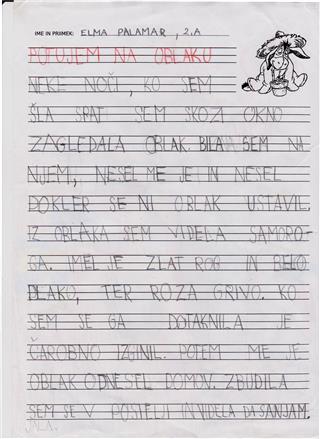 IME IN PRIIMEK: ELMA PALAMAR, 2.A
POTUJEM NA OBLAKU
NEKE NOČI, KO SEM
ŠLA SPAT SEM SKOZI OKNO
ZAGLEDALA OBLAK. BILA SEM NA
NJEM, NESEL ME JE IN NESEL
DOKLER SE NI OBLAK USTAVIL.
IZ OBLAKA SEM VIDELA SAMORO-
GA. IMEL JE ZLAT ROG IN BELO
DLAKO, TER ROZA GRIVO. KO
SEM SE GA DOTAKNILA JE
ČAROBNO IZGINIL. POTEM ME JE
OBLAK ODNESEL DOMOV. ZBUDILA
SEM SE V POSTELJI IN VIDELA DA SANJAM.